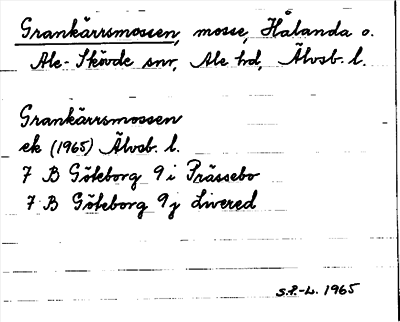 Grankärrsmossen, mosse, Hålanda o.
Ale-Skövde snr, Ale hd, Älvsb. l.
Grankärrsmossen
ek (1965) Älvsb. l.
7 B Göteborg 9 i Prässebo
7 B Göteborg 9 j Livered
S.P.-L. 1965